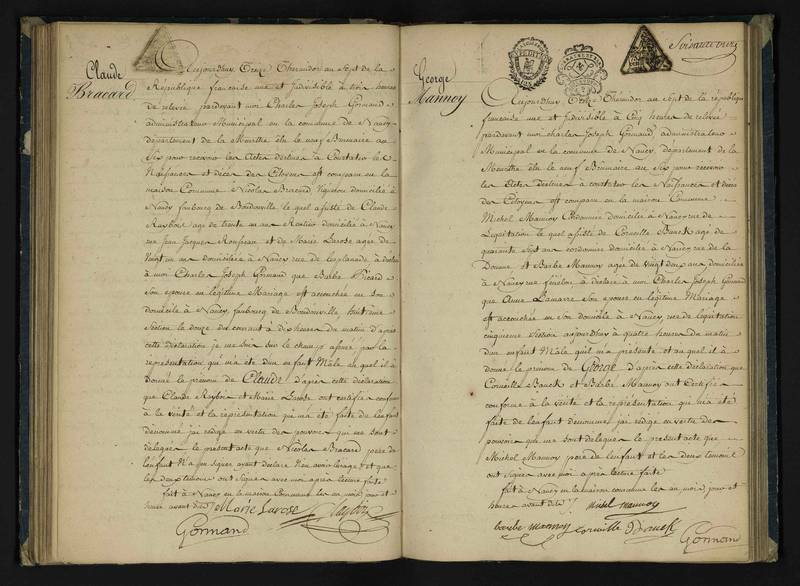 Claude
Bracard
Aujourdhuy Treize Thermidor an Sept de la
République française une et Indivisible à trois heures
de relevée pardevant moi Charles Joseph Gormand
administrateur Municipal en la commune de Nancy
département de la Meurthe élu le neuf Brumaire an
Six pour recevoir les Actes destinés à Constater les
Naissances et décès des Citoyens est comparu en la
maison Commune Nicolas Bracard Vigneron domicilié à
Nancy faubourg de Boudonville lequel assisté de Claude
Raybois agé de trente un ans Rentier domicilié à Nancy
rue Jean Jacques Rousseau et de Marie Larose agée de
Vingt un ans domiciliée à Nancy rue de lesplanade à déclaré
à moi Charles Joseph Gormand que Barbe Picard
Son epouse en légitime Mariage est accouchée en son
domicile à Nancy faubourg de Boudonville huitieme
Section le douze du courant à dix heures du matin d'après
cette déclaration je me suis sur le champ assuré par la
représentation qui m'a été d'un enfant Mâle auquel il à
donné le prénom de Claude d'après cette déclaration
que Claude Raybois et Marie Larose ont certifiée conforme
à la vérité et la représentation qui ma été faite de lenfant
dénommé jai rédigé en vertu des pouvoirs qui me sont
délégués le present acte que Nicolas Bracard père de
lenfant N'a pu signer ayant déclaré Nen avoir lusage et que
les deux témoins ont signé avec moi après lecture faite
fait à Nancy en la maison Commune les an mois jour et
heures avant dits Marie Larose
Gormand
George
Mannoy
Soixante onze
Aujourdhuy Treize Thermidor an Sept de la république
française une et Indivisible à Cinq heures de relevée
pardevant moi charles Joseph Gormand administrateur
Municipal en la commune de Nancy, département de la
Meurthe élu le neuf Brumaire an Six pour recevoir
les Actes destinés à constater les Naissances et décès
des Citoyens est comparu en la maison Commune
Michel Mannoy Cordonnier domicilié à Nancy rue de
Législation lequel assisté de Corneille Banck agé de
quarante Sept ans cordonnier domicilié à Nancy rue de la
Douane et Barbe Mannoy agée de Vingt deux ans domiciliée
à Nancy rue fénélon à déclaré à moi Charles Joseph Gormand
que Anne Lamarre Son epouse en légitime Mariage
est accouchée en son domicile à Nancy, rue de législation
cinquieme Section aujourdhuy à quatre heures du matin
dun enfant Mâle quil m'a présenté et auquel il à
donné le prénom de George d'après cette déclaration que
Corneille Banck et Barbe Mannoy ont Certifiée
conforme à la vérité et la représentation qui m'a été
faite de lenfant denommé jai rédigé en vertu des
pouvoirs qui me sont délégués le present acte que
Michel Mannoy père de lenfant et les deux temoins
ont signé avec moi après lecture faite
fait à Nancy en la maison commune les an mois jour et
heures avant dits michel mannoy
barbe mannoy corneille
Gormand